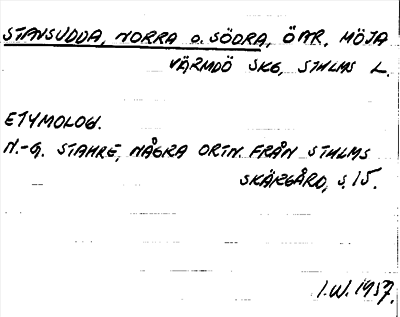 STANSUDDA, NORRA o. SÖDRA, ÖAR, MÖJA
VÄRMDÖ SKG, STHLMS L.
ETYMOLOG.
N.-G. STAHRE, NÅGRA ORTN. FRÅN STHLMS
SKÄRGÅRD, s. 15.
I.W. 1957.